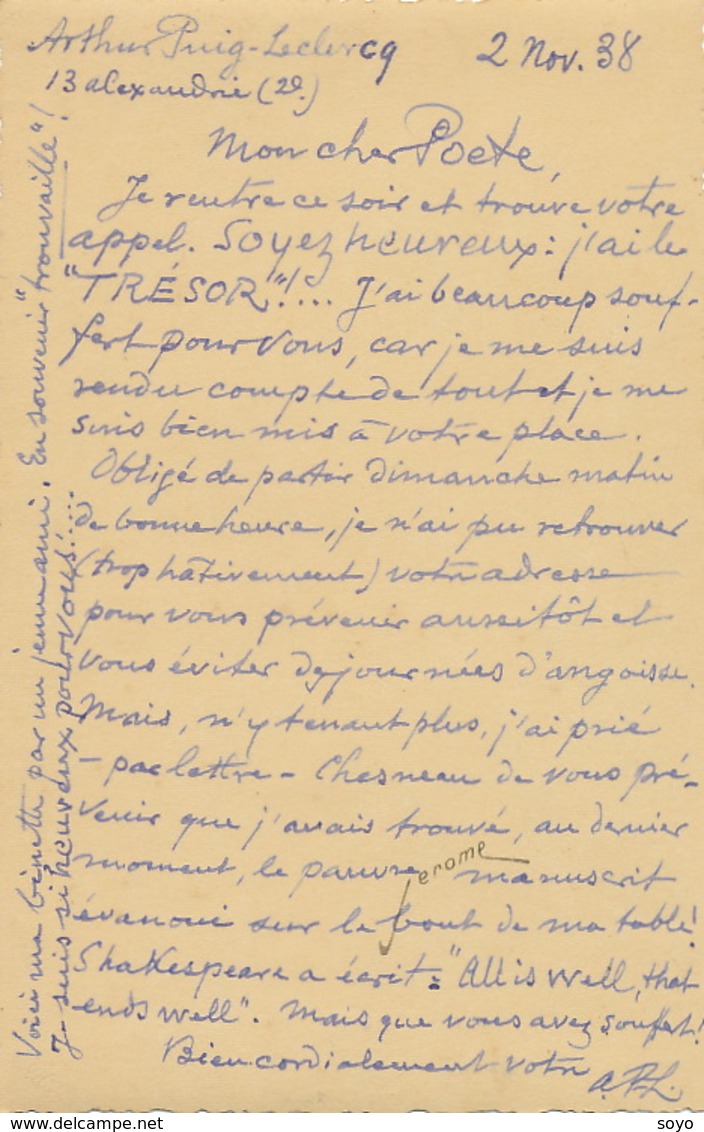 Arthur Puig-Leclercq 2 Nov. 38
13 alexandrie (2e.)
Mon cher Poete,
Je rentre ce soir et trouve votre
appel. Soyez heureux : j'ai le
"TRÉSOR"!... J'ai beaucoup souf-
fert pour vous, car je me suis
rendu compte de tout et je me
suis bien mis à votre place.
Obligé de partir dimanche matin
de bonne heure, je n'ai pu retrouver
(trop hâtivement) votre adresse
pour vous prévenir aussitôt et
vous éviter des journées d'angoisse.
Mais, n'y tenant plus, j'ai prié
- par lettre - Chesneau de vous pré-
venir que j'avais trouvé, au dernier
moment, le pauvre manuscrit
Jerome
évanoui sur le bout de ma table!
Shakespeare a écrit : "All is well, that
ends well". Mais que vous avez souffert!
Bien cordialement votre
A.P.L.
Voici ma binette par un jeune ami. En souvenir "trouvaille"!
Je suis si heureux pour vous!....
soyo